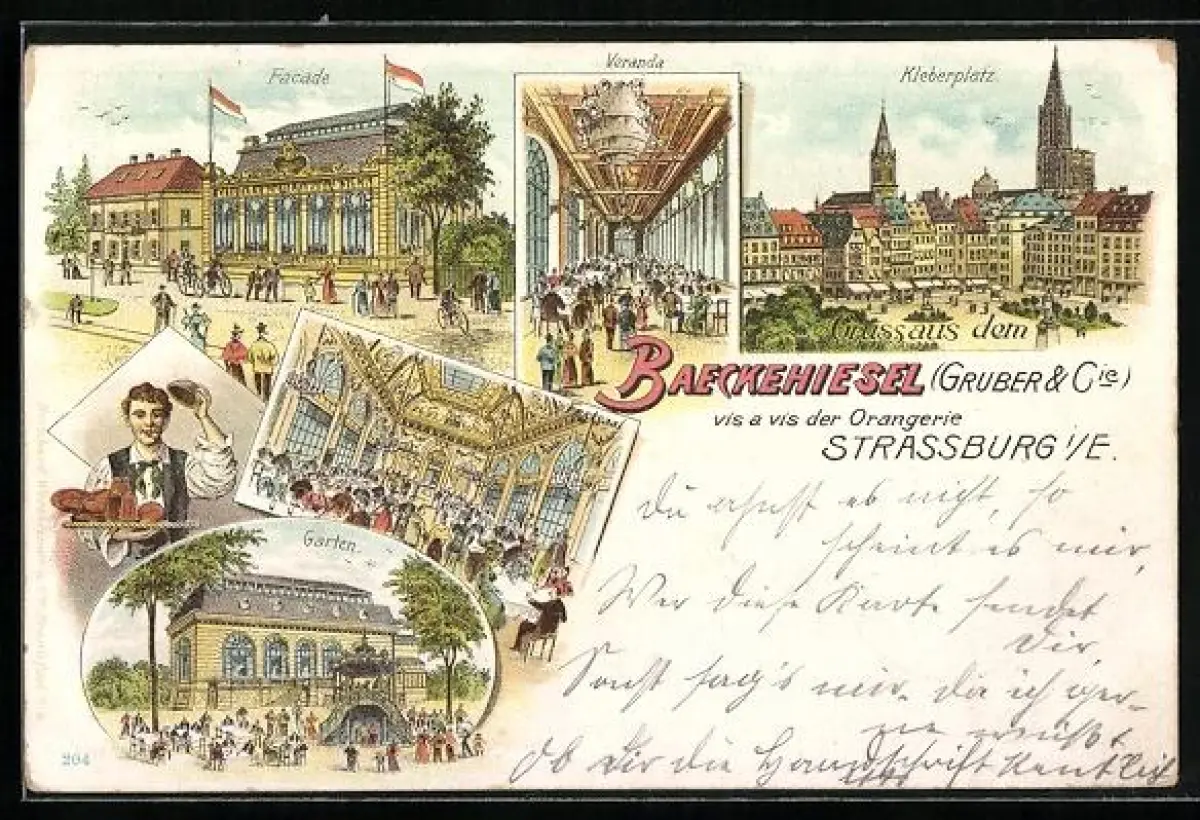 Facade
Veranda
Kleberplatz.
Gruss aus dem
BAECKEHIESEL (GRUBER & Cie)
vis a vis der Orangerie
STRASSBURG i/E.
Garten.
204
Du ahnst es nicht, so
scheint es mir,
Wer diese Karte sendet
Dir,
Sonst sag's mir da ich ger-
ne wüßt
Ob Dir die Handschrift kentlich